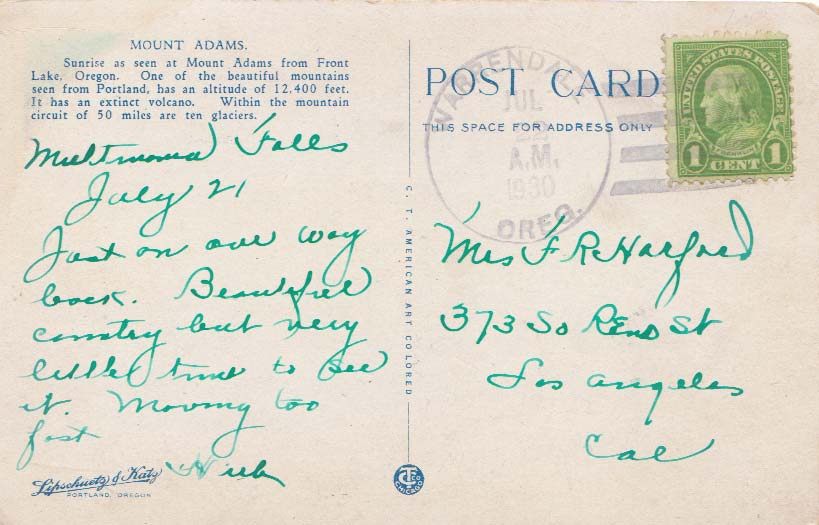 MOUNT ADAMS.
Sunrise as seen at Mount Adams from Front
Lake, Oregon. One of the beautiful mountains
seen from Portland, has an altitude of 12,400 feet.
It has an extinct volcano. Within the mountain
circuit of 50 miles are ten glaciers.
Falls
July 21
Just on our way
back. Beautiful
country but very
little time to see
it. Moving too
fast
Lipschuetz & Katz
PORTLAND, OREGON
C. T. AMERICAN ART COLORED
CHICAGO
POST CARD
THIS SPACE FOR ADDRESS ONLY
WARRENDALE
JUL
22
A.M.
1930
OREG.
UNITED STATES POSTAGE
FRANKLIN
1 CENT 1
Mrs F R Harford
373 So Reno St
Los Angeles
Cal